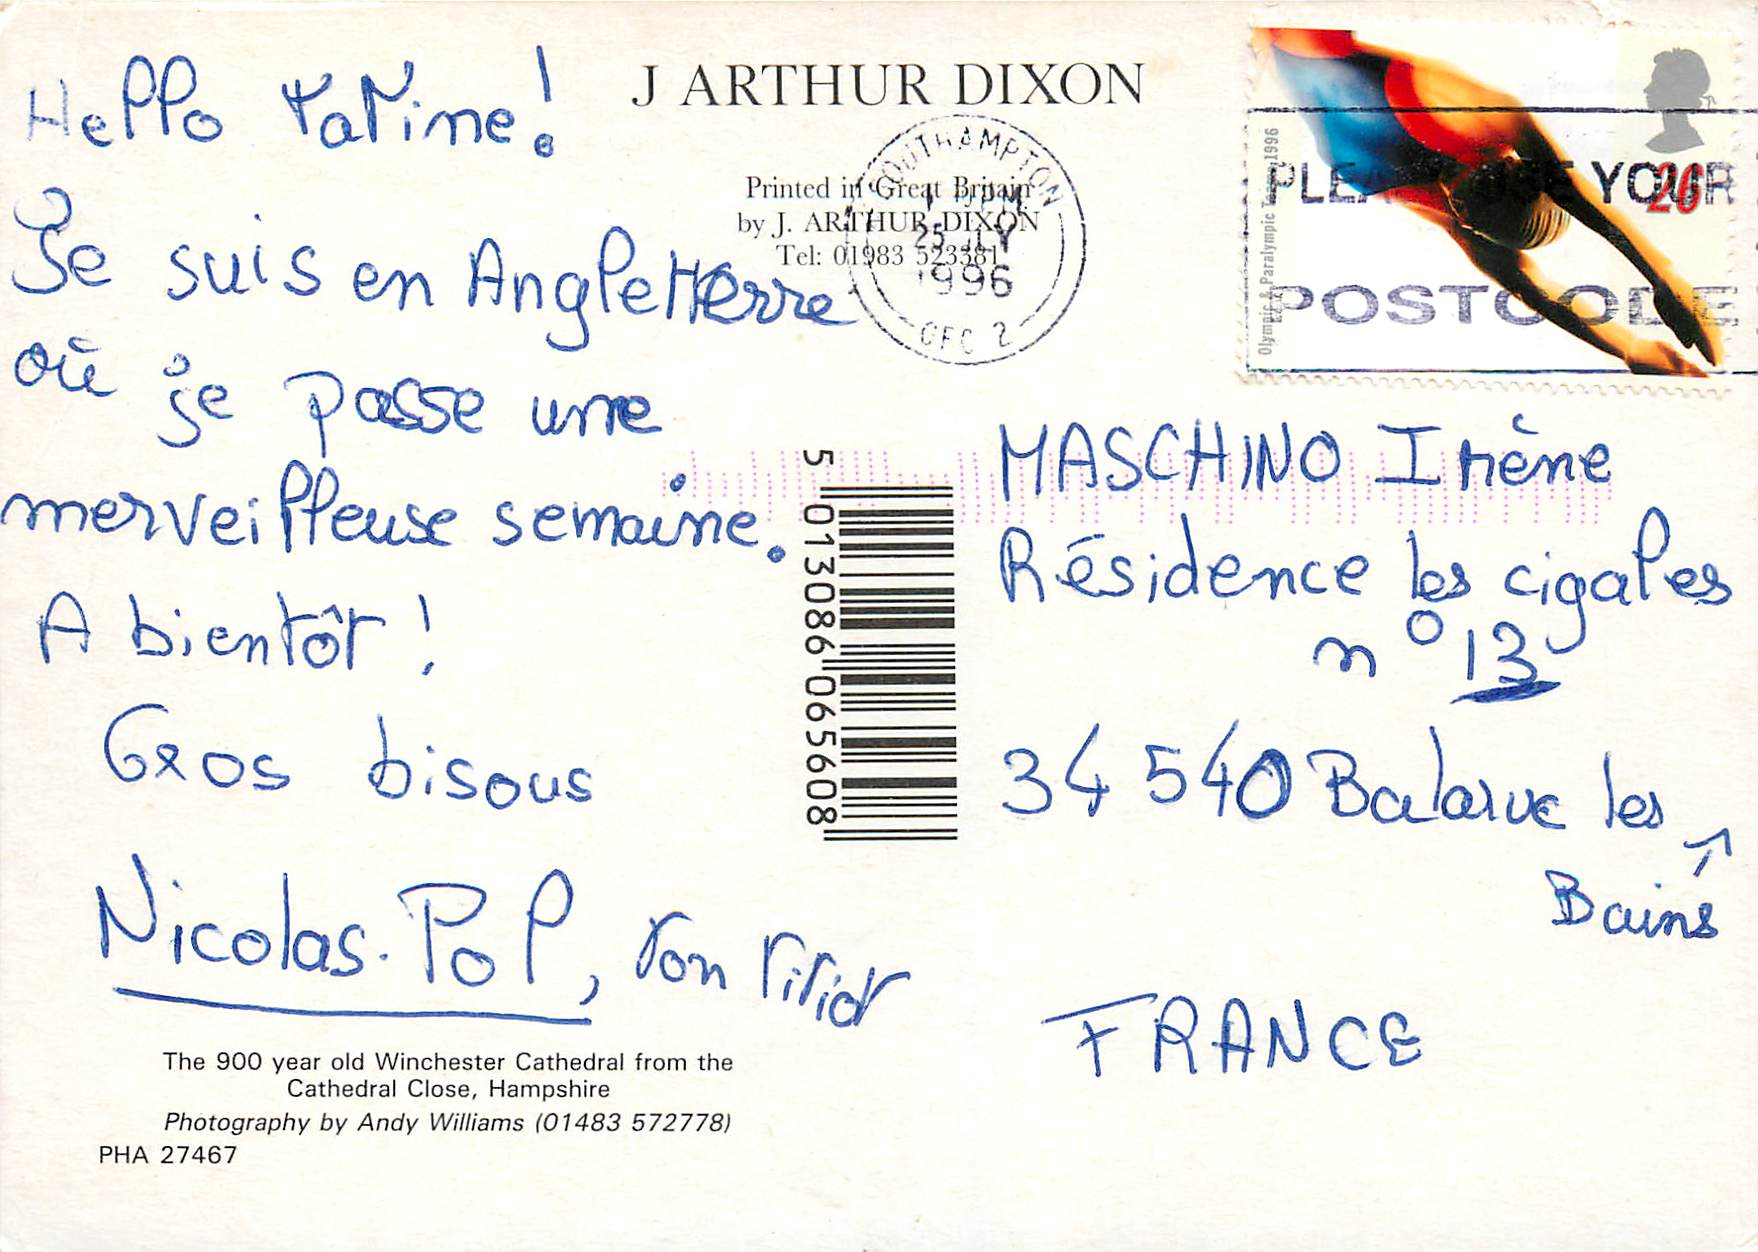 Hello tatine!
Je suis en Angleterre
où je passe une
merveilleuse semaine.
A bientôt !
Gros bisous
Nicolas. Pol, ton
The 900 year old Winchester Cathedral from the
Cathedral Close, Hampshire
Photography by Andy Williams (01483 572778)
PHA 27467
J ARTHUR DIXON
Printed in Great Britain
by J. ARTHUR DIXON
Tel: 01983 523381
SOUTHAMPTON
25 JLY
1996
OFC 2
5 013086 065608
Olympic & Paralympic Team 1996
26
PLEASE USE YOUR
POSTCODE
MASCHINO Irène
Résidence les cigales
n° 13
34 540 Balaruc les
Bains
FRANCE